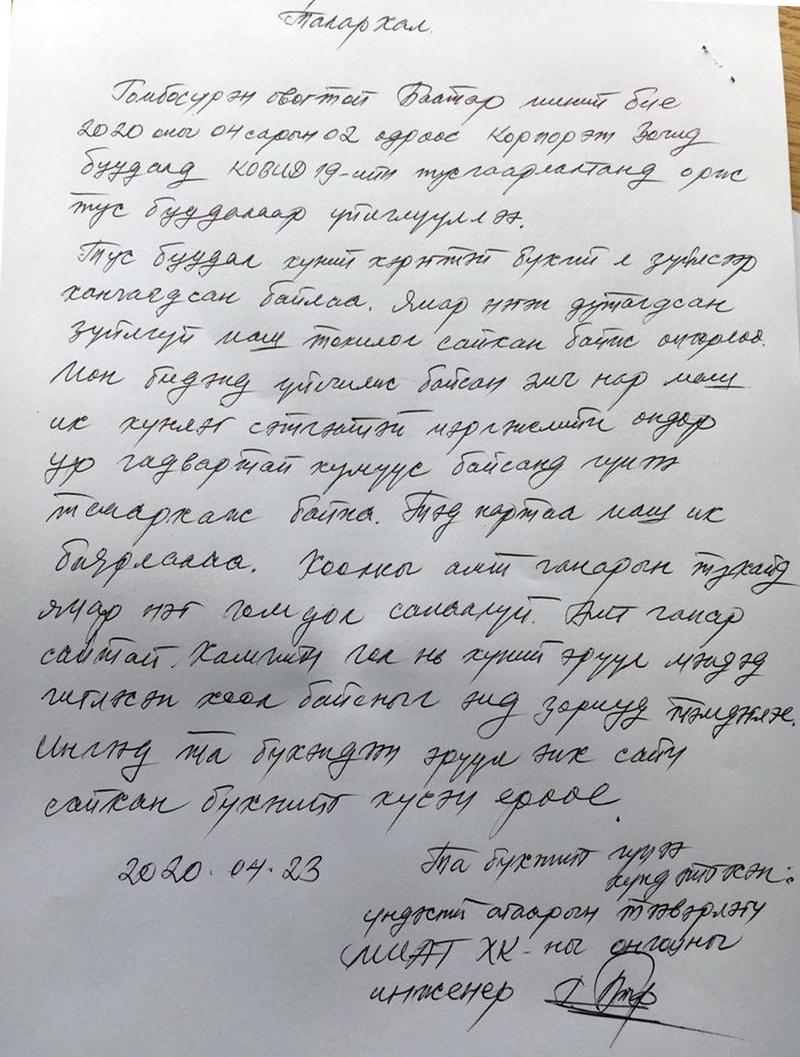 Талархал.
Гомбосүрэн овогтой Баатар миний бие
2020 оны 04 сарын 02 өдрөөс Корпорэт Зочид
буудалд КОВИД 19-ийн тусгаарлалтанд орж
тус буудалаар үйлчлүүллээ.
Тус буудал хүний хэрэгтэй бүхий л зүйлсээр
хангагдсан байлаа. Ямар нэг дутагдсан
зүйлгүй маш тохилог сайхан байж өнгөрлөө.
Мөн бидэнд үйлчилж байсан эмч нар маш
их хүнлэг сэтгэлтэй мэргэжлийн өндөр
ур чадвартай хүмүүс байсанд гүнээ
талархаж байна. Тэд нартаа маш их
баярлалаа. Хоолны амт чанарын тухайд
ямар нэг гомдол саналгүй. Амт чанар
сайтай. Хамгийн гол нь хүний эрүүл мэндэд
чиглэсэн хоол байсныг энд зориуд тэмдэглэе.
Ингээд та бүхэндээ эрүүл энх сайн
сайхан бүхнийг хүсэн ерөөе.
2020.04.23
Та бүхнийг гүнээ
хүндэтгэсэн:
үндэсний агаарын тээвэрлэгч
МИАТ ХК-ны онгоцны
инженер